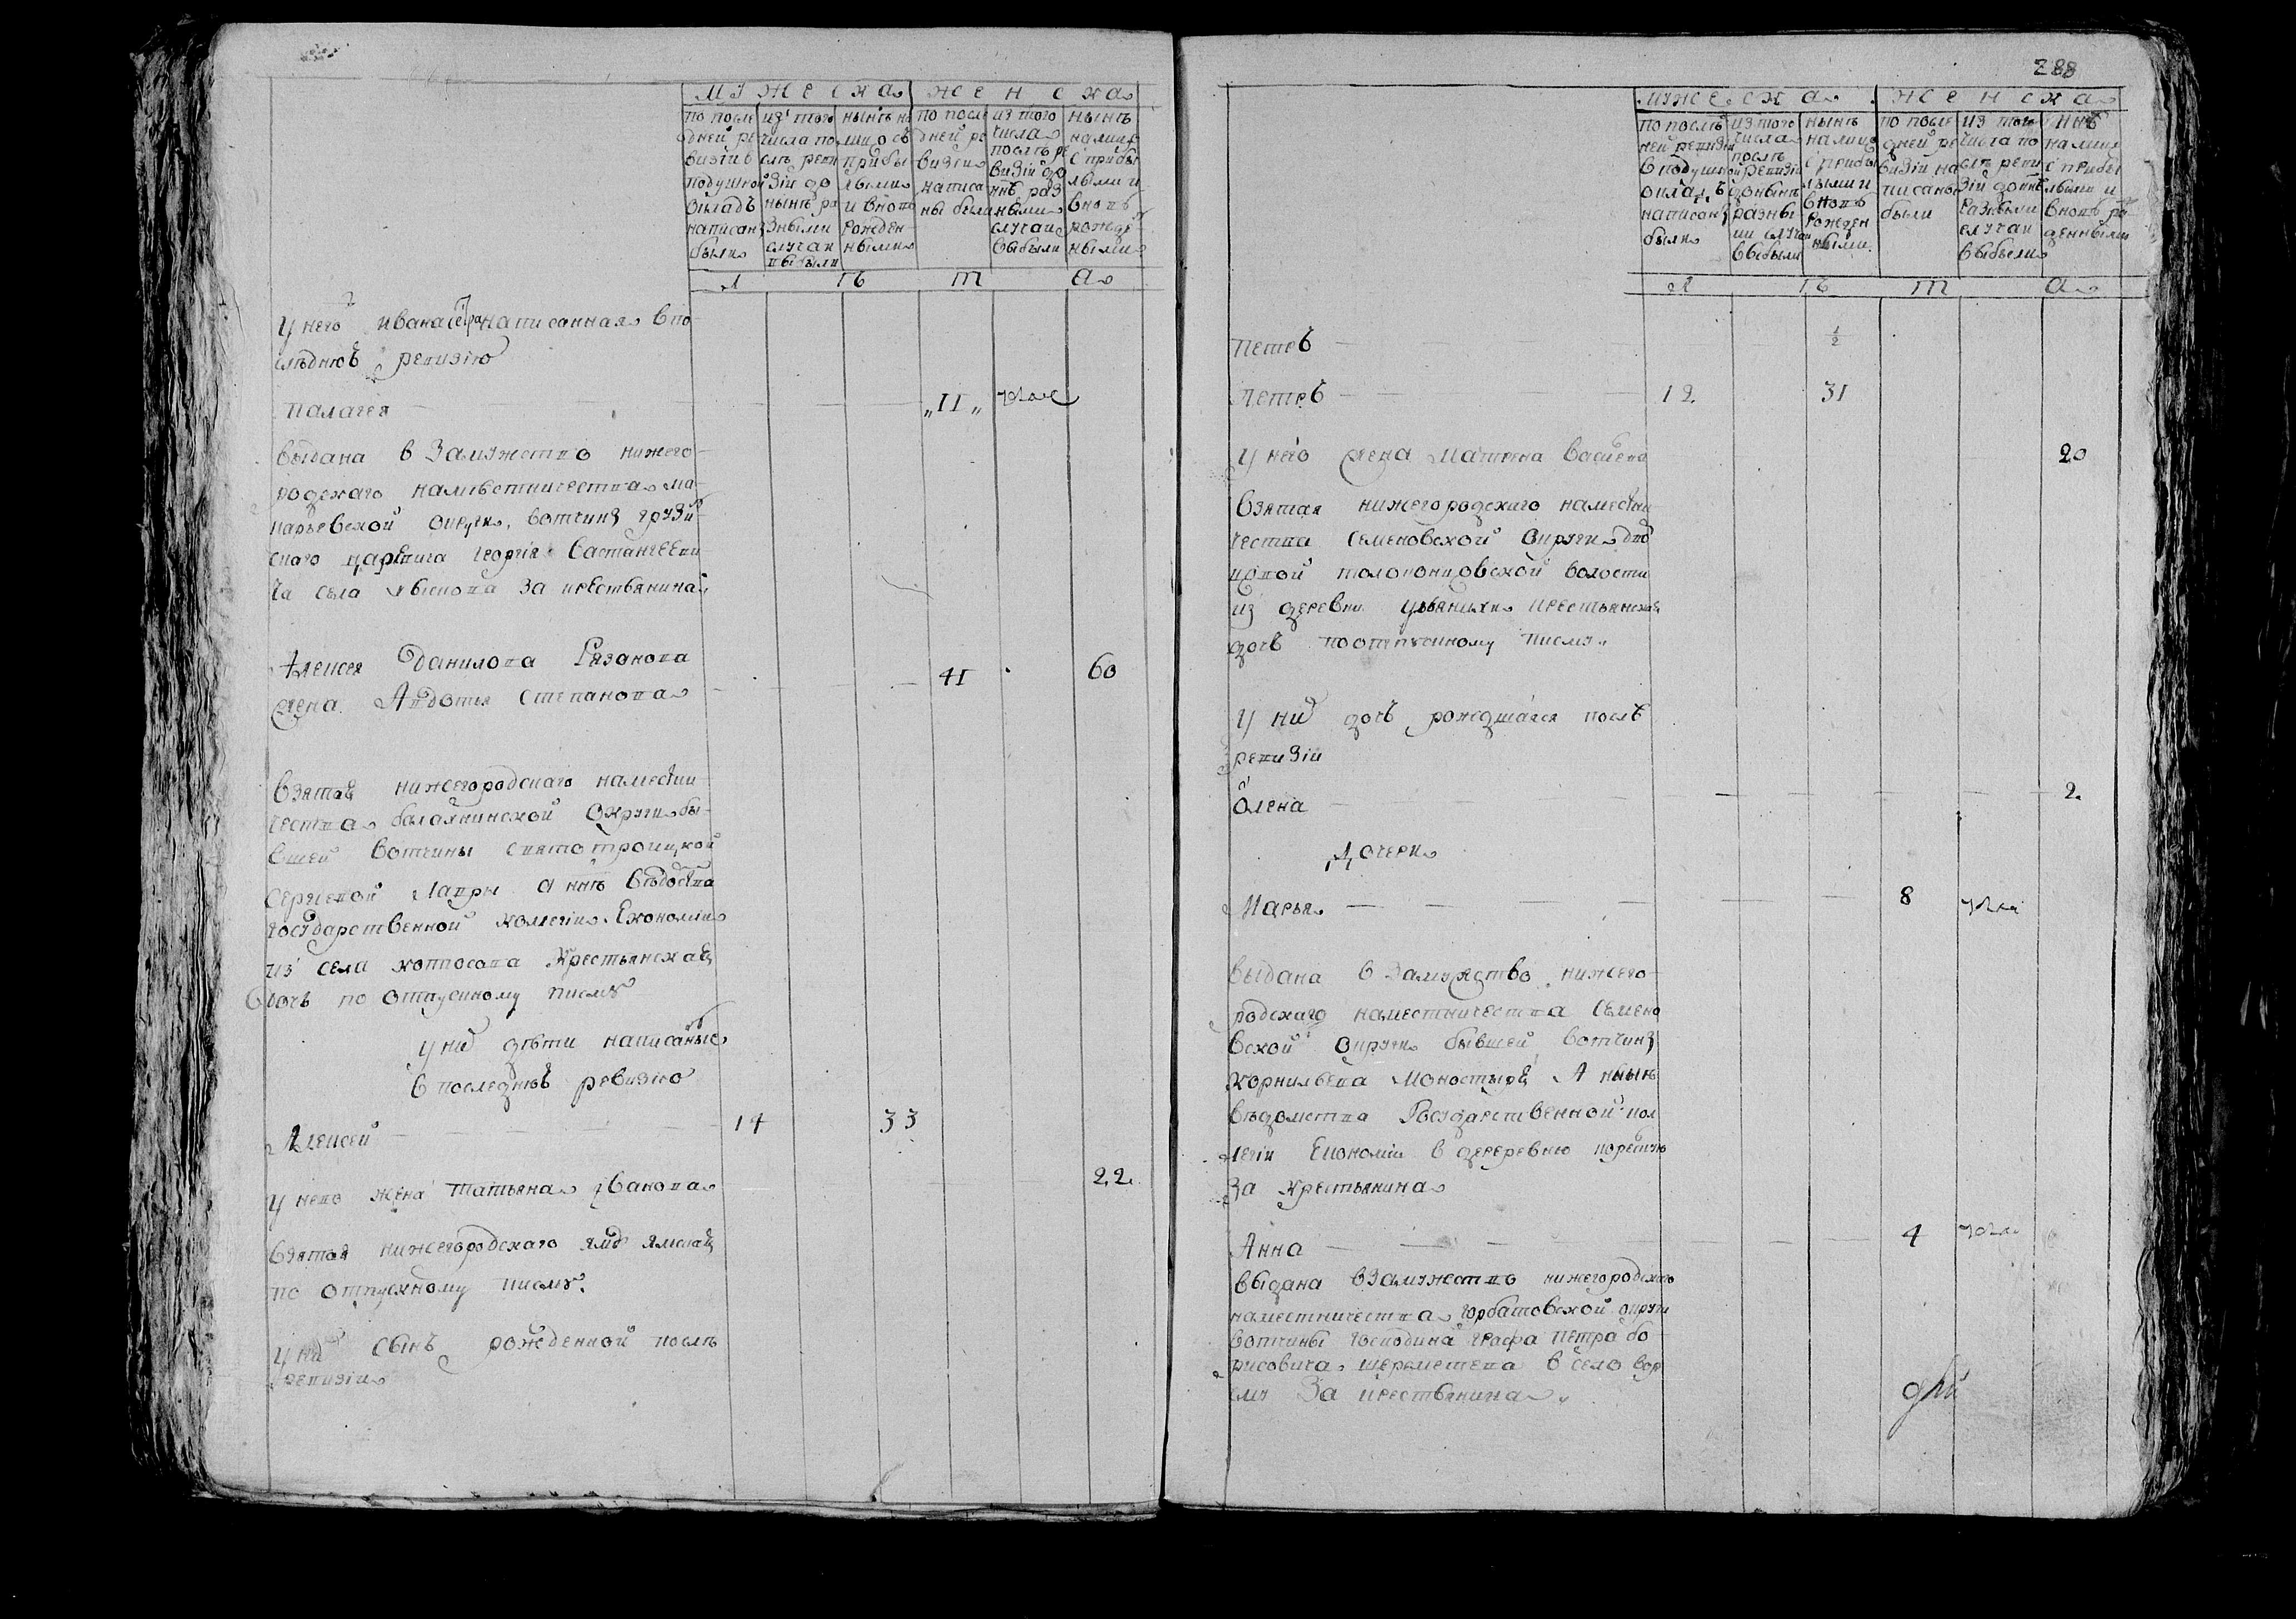 мужеска женска
по после
дней ре
визии в
подушной
окладъ
написаны
были
из того
числа по
слѣ реви
зіи до
нынѣ ра
зными
случаи
выбыли
нынѣ на
лицо съ
прибы
лыми
и вновь
рожден
ными
по после
дней ре
визіи
написа
ны были
из того
числа
послѣ ре
визіи до
ннѣ раз
ными
случаи
выбыли
нынѣ
налицо
с прибы
лыми и
вновь
рожде
ными
л ѣ т а
у него Ивана сестра написанная в по
слѣднюѣ ревизію
Палагея „11„
выдана в замужство нижего
родскаго намѣстничества ма
карьевской округи вотчины грузи
нского царевича Георгия Вастангееви
ча села лыскова за крестьянина
Алексея Данилова Рязанова
жена Авдотья Степанова 41 60
взятая нижегородскаго наместни
чества балахнинской округи бы
вшей вотчины святотроицкой
Сергиевой Лавры а ннѣ вѣдомства
государственной колегии Економии
из села копосова крестьянская
дочь по отпускному писму
у них дѣти написаные
в последнюѣ ревизию
Алексей 14 33
у него жена Татьяна Иванова 22
взятая нижегородскаго яму ямская
по отпускному писму
у них сынъ рожденной послѣ
ревизіи
288
мужеска женска
по послѣ
ней ревизіи
в подушной
окладъ
написаны
были
из того
числа
послѣ
ревизіи
до нынѣ
разны
ми случаи
выбыли
нынѣ
налицо
с прибы
лыми и
вновь
рожден
ными
по после
дней ре
визіи на
писаны
были
из того
числа по
слѣ реви
зіи до ннѣ
разными
случаи
выбыли
ннѣ
налицо
с прибы
лыми и
вновь ро
жденными
л ѣ т а
Петръ 1/2
Петръ 12 31
у него жена Матрена Васильева 20
взятая нижегородскаго наместни
чества Семеновской округи дво
рцовой толоконцовской волости
из деревни крестьянская
дочь по отпускному писму
у них дочь рождшаяся послѣ
ревизіи
Олена 2
Дочери
Марья 8
выдана в замужство нижего
родскаго наместничества Семено
вской округи бывшей вотчины
Корнильева Монастыря А нынѣ
вѣдомства Государственной кол
легіи Економіи в дереревню
за крестьянина
Анна 4
выдана в замужство нижегородскаго
наместничества горбатовской округи
вотчины господина графа Петра Бо
рисовича шереметева в село вор
сму за крестьянина